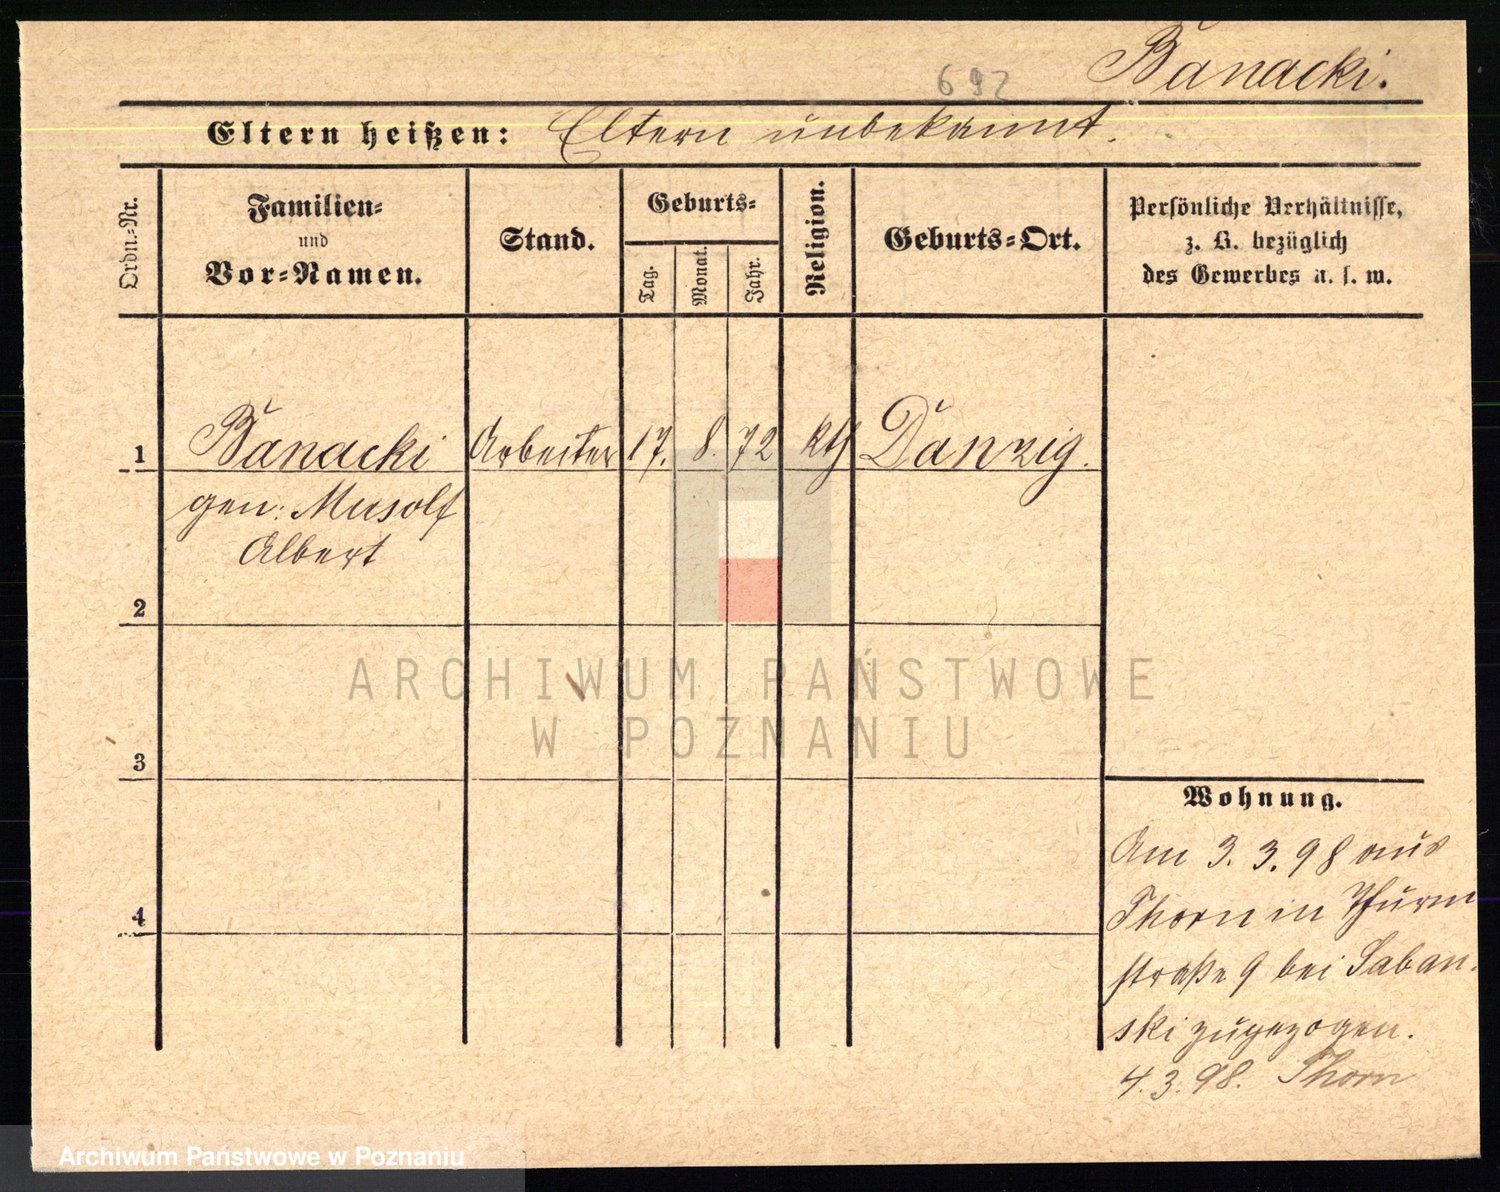 Banacki.
692
Eltern heißen: Eltern unbekannt.
Ordn.-Nr.
Familien-
und
Vor-Namen.
Stand.
Geburts-
Tag.
Monat.
Jahr.
Religion.
Geburts-Ort.
Persönliche Verhältnisse,
z. B. bezüglich
des Gewerbes u. s. w.
1 Banacki Arbeiter 17. 8. 72 kth Danzig.
gen: Musolf
Albert
2
3
4
Wohnung.
Am 3. 3. 98 aus
Thorn in Thurm
straße 9 bei Laban-
ski zugezogen.
4.3.98. Thorn
ARCHIWUM PAŃSTWOWE
W POZNANIU
Archiwum Państwowe w Poznaniu